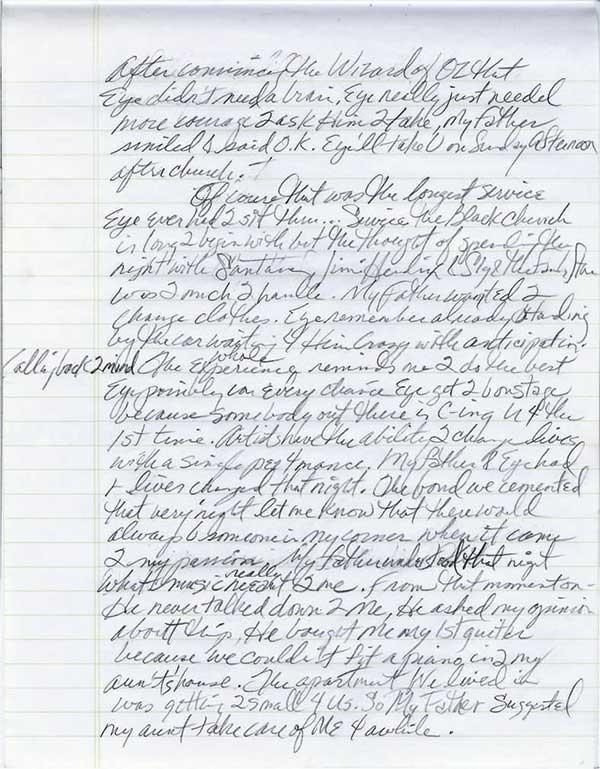 After convincing The Wizard of OZ that
Eye didn't need a brain, Eye really just needed
more courage 2 ask Him 2 take, My Father
smiled & said O.K. Eye'll take U on Sunday afternoon
after church.
Of course that was the longest service
Eye ever had 2 sit thru... Service @ the Black Church
is long 2 begin with but the thought of spending the
night with Santana, Jimi Hendrix & Sly & the Family Stone
was 2 much 2 handle. My Father wanted 2
change clothes. Eye remember already standing
by the car waiting 4 Him crazy with anticipation.
Calling back 2 mind The whole experience reminds me 2 do the best
Eye possibly can every chance Eye get 2 b onstage
because somebody out there is C-ing U 4 the
1st time. Artists have the ability 2 change lives
with a single per4mance. My Father & Eye had
R lives changed that night. The bond we cemented
that very night let me know that there would
always b someone in my corner when it came
2 my passion. My Father understood that night
what music really meant 2 me. From that moment on
He never talked down 2 Me, He asked my opinion
about things, He bought Me my 1st guitar
because we couldn't fit a piano in 2 my
aunt's house. The apartment We lived in
was getting 2 small 4 Us. So My Father suggested
my aunt take care of Me 4 awhile.